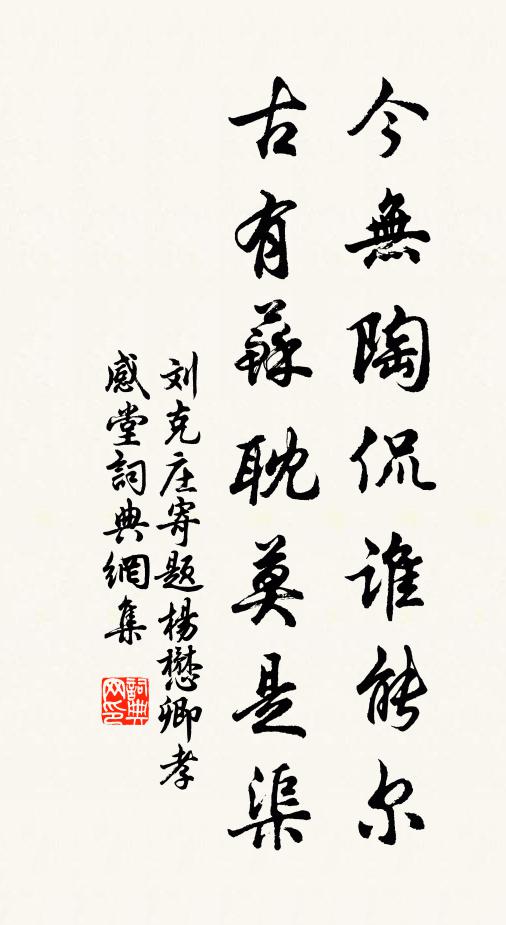 今無陶侃谁能尔
古有蘇耽莫是渠
刘克庄寄题楊懋卿孝
感堂詞典網集
詞典网印